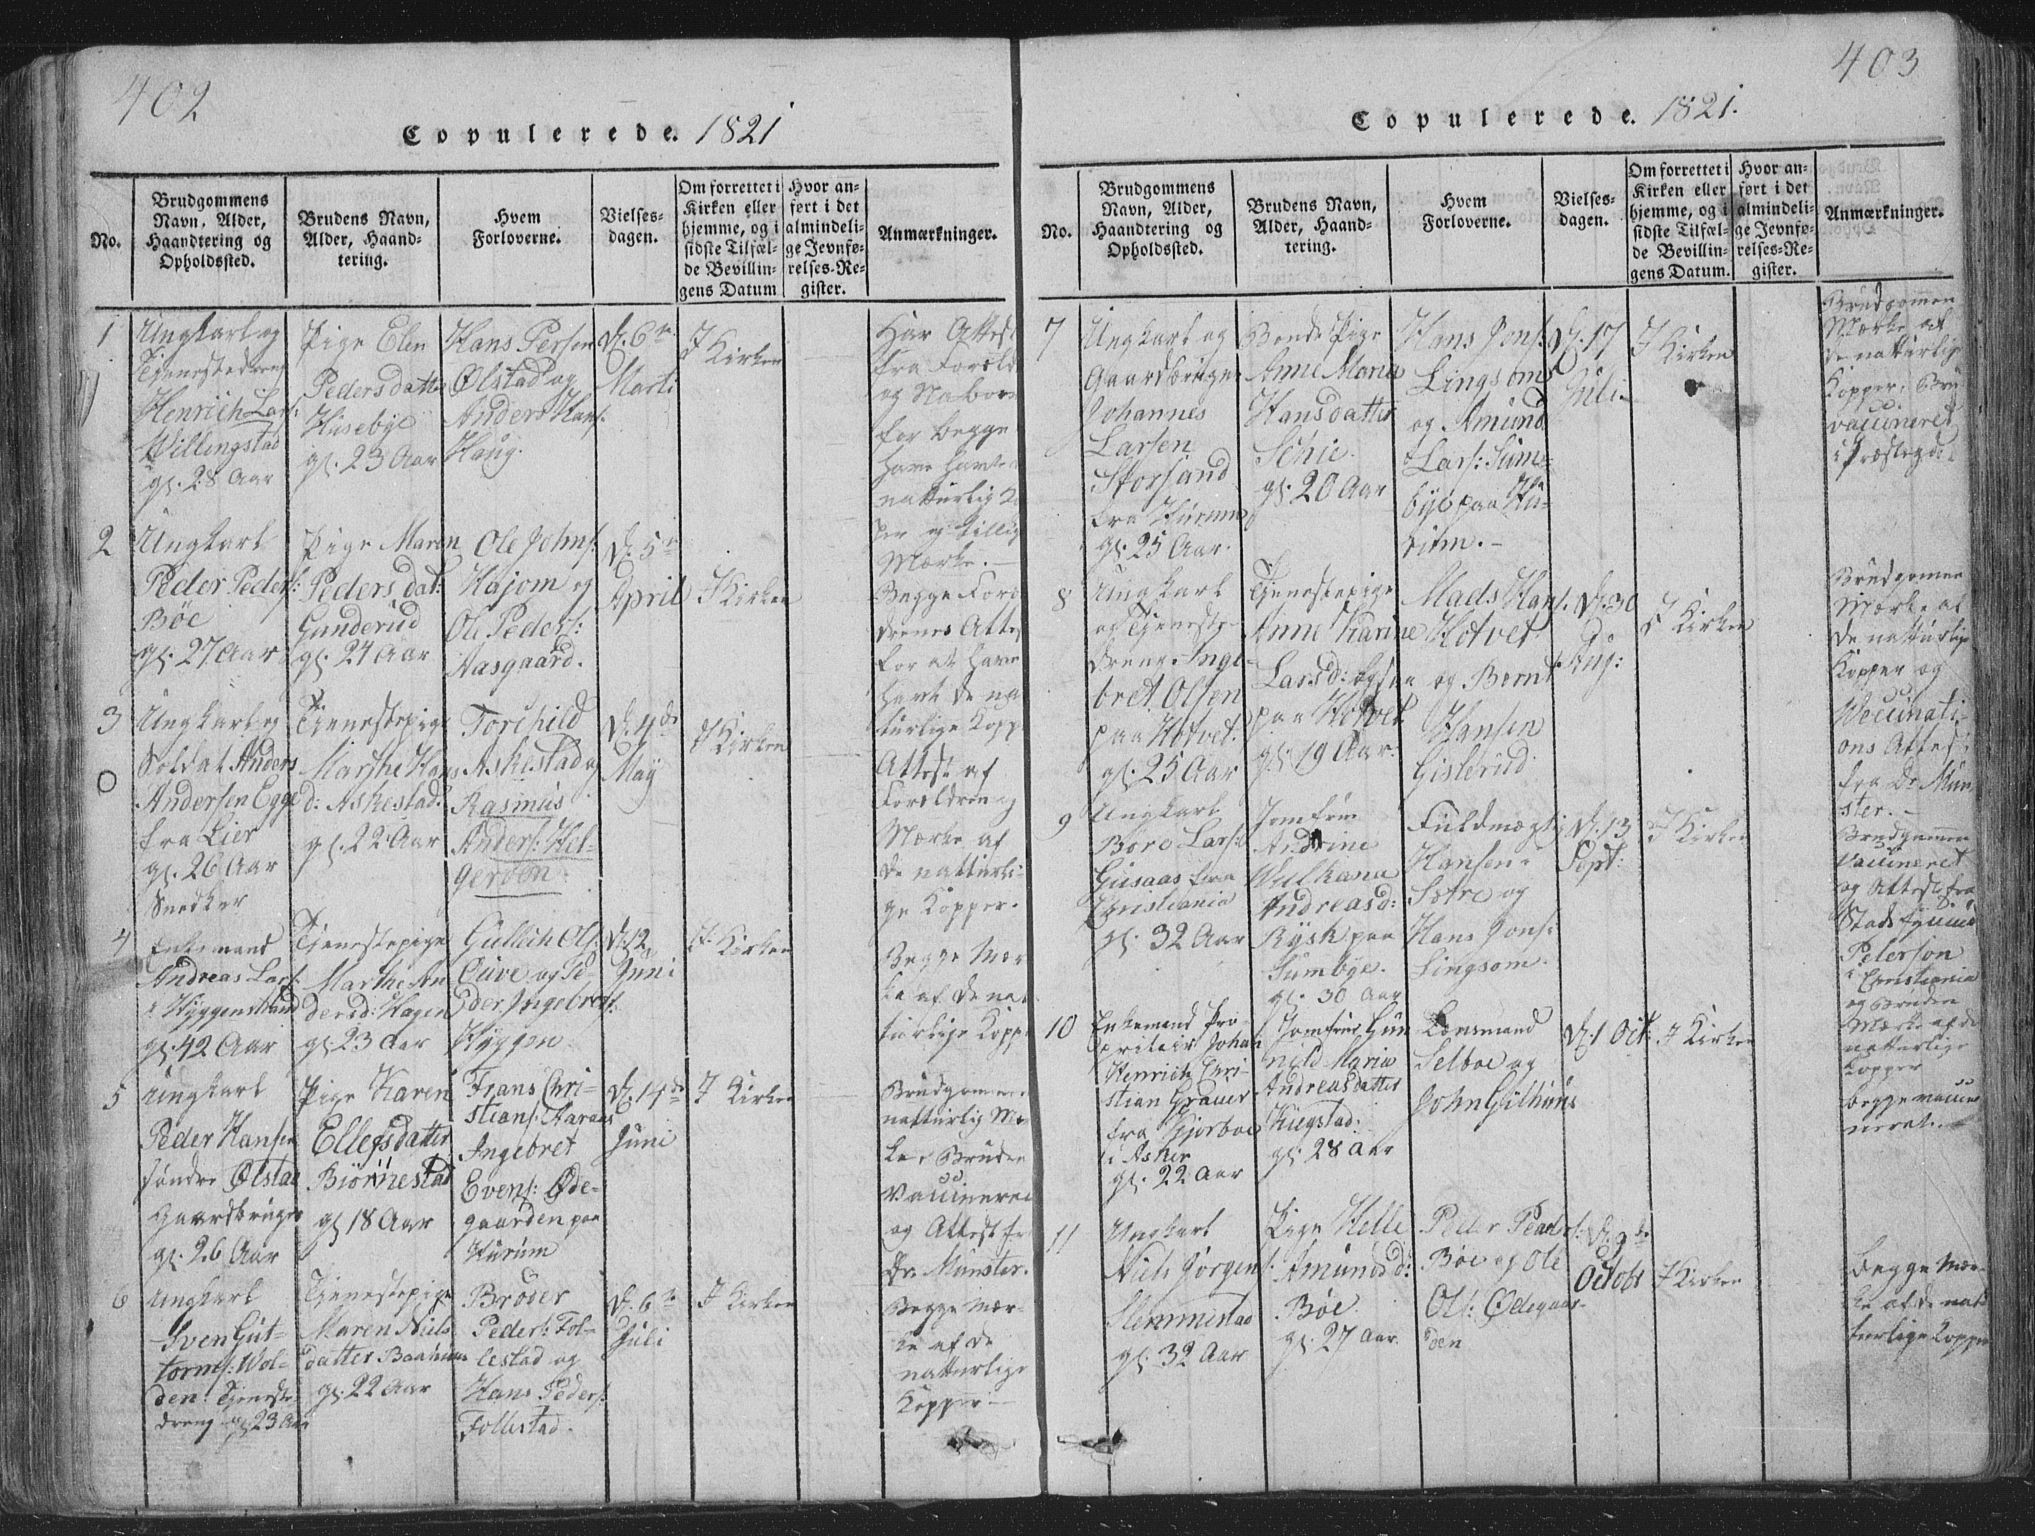 402
Copulerede. 1821
No.
Brudgommens
Navn, Alder,
Haandtering og
Opholdssted.
Brudens Navn,
Alder, Haand-
tering.
Hvem
Forloverne.
Vielses-
dagen.
Om forrettet i
Kirken eller
hjemme, og i
sidste Tilfæl-
de Bevillin-
gens Datum
Hvor an-
ført i det
almindeli-
ge Jevnfø-
relses-Re-
gister.
Anmærkninger.
1
Ungkarl og
Tjenestedreng
Henrich Lars:
Willingstad
gl. 28 Aar
Pige Elen
Pedersdatter
Husebye
gl. 23 Aar
Hans Persen
Ølstad og
Anders Hans:
Haug.
D. 6te
Marti
I Kirken
Har Attest
fra Foræld
og Naboer
for begge
have havt
naturlig
Mærke. –
2
Ungkarl
Peder Peders:
Bøe
gl. 27 Aar
Pige Maren
Pedersdat:
Gunderud
gl. 24 Aar
Ole Johns:
Hajom og
Ole Peders:
Aasgaard.
D. 5te
April
I Kirken
Begge For
ældrenes Attes
for at have
havt de na
turlige Kopp
3
Ungkarl og
Soldat Anders
Andersen Egge
fra Lier
gl. 26 Aar
Snedker
Tjenestepige
Marthe Hans
d: Askestad.
gl. 22 Aar
Torchild
Askestad og
Rasmus
Anders: Hel-
gerøen.
D. 4de
May
I Kirken
Attest af
Forældrene og
Mærke af
de natturli-
ge Kopper.
4
Enkemand
Andreas Lars:
i Hyggenstrand
gl. 42 Aar
Tjenestepige
Marthe An
dersd: Hagen
gl. 23 Aar
Gullich Ols:
Cuve og Pe-
der Ingebrets:
Hyggen
D. 12
Juni
I Kirken
Begge Mær
ke af de nat
turlige Kopp
5
Ungkarl
Peder Hansen
søndre Ølstad
Gaardbruger
gl. 26 Aar
Pige Karen
Ellefsdatter
Biørnestad
gl 18 Aar
Frans Chri-
stians: Aaraas
Ingebret
Evens: Øde-
gaarden paa
Hurum
D. 14de
Juni
I Kirken
Brudgommen
natturlig Mær
ke Bruden
Vaccineret
og Attest fr
Dr. Münster.
6
Ungkarl
Sven Gut-
torms: Wol-
den. Tjeneste-
dreng gl 23 Aar
Tjenestepige
Maren Niels
datter Baahuus
gl. 22 Aar
Brøder
Peders: Fol-
lestad og
Hans Peders:
Follestad.
D. 6te
Juli
I Kirken
Begge Mær-
ke af de
natturlige
Kopper. –
403
Copulerede. 1821.
No.
Brudgommens
Navn, Alder,
Haandtering og
Opholdssted.
Brudens Navn,
Alder, Haand-
tering.
Hvem
Forloverne.
Vielses-
dagen.
Om forrettet i
Kirken eller
hjemme, og i
sidste Tilfæl-
de Bevillin-
gens Datum.
Hvor an-
ført i det
almindeli-
ge Jevnfø-
relses-Re-
gister.
Anmærkninger.
7
Ungkarl og
Gaardbruger
Johannes
Larsen
Storsand
fra Hurum
gl. 25 Aar.
Bonde Pige
Anne Maria
Hansdatter
Schie.
gl. 20 Aar
Hans Jons:
Lingsom
og Amund
Lars: Sum-
bye paa Hu-
rum. –
D. 17
Juli
I Kirken
Brudgommen
Mærke af
de natturlige
Kopper, Bru
vaccineret
i Præstegd.
8
Ungkarl
og Tjeneste-
dreng Inge-
bret Olsen
paa Hotvet.
gl. 25 Aar
Tjenestepige
Anne Karine
Larsd:
paa Hotvet
gl. 19 Aar.
Mads Hans:
Hotvet
og Bernt
Hansen
Gislerud.
D. 30
Aug:
I Kirken
Brudgommen
Mærke af
de natturlige
Kopper og
Vaccinati-
ons Attest
fra Dr Mün
ster. –
9
Ungkarl
Bore Lars:
Gusaas fra
Christiania
gl. 32 Aar
Jomfru
Andrine
Wilkana
Andreasd:
Rysk paa
Sumbye.
gl. 30 Aar
Fuldmægtig
Hansen
Sætre og
Hans Jons:
Lingsom.
D. 13
Sept:
I Kirken
Brudgommen
Vaccineret
og Attest fra
Peterson
i Christiania
og Bruden
Mærke af de
natturlige
Kopper
10
Enkemand Pro-
pritair Johan
Henrich Chri-
stian Grauer
fra Gjorboe
i Asker
gl. 22 Aar
Jomfrue Gun
nild Maria
Andreasdatter
Kiegstad:
gl. 28 Aar
Lensmand
Selboe og
John Gilhuus
D. 1 Oct.
I Kirken
begge vacci
neret. –
11
Ungkarl
Niels Jørgens:
Slemmestad
gl. 32 Aar
Pige Helle
Amundsd:
Bøe
gl. 27 Aar.
Peder Peders:
Bøe og Ole
Ols: Ødegaar-
den
D. 9de
Octobr
I Kirken
begge Mær-
ke af de nat
turlige Kopper